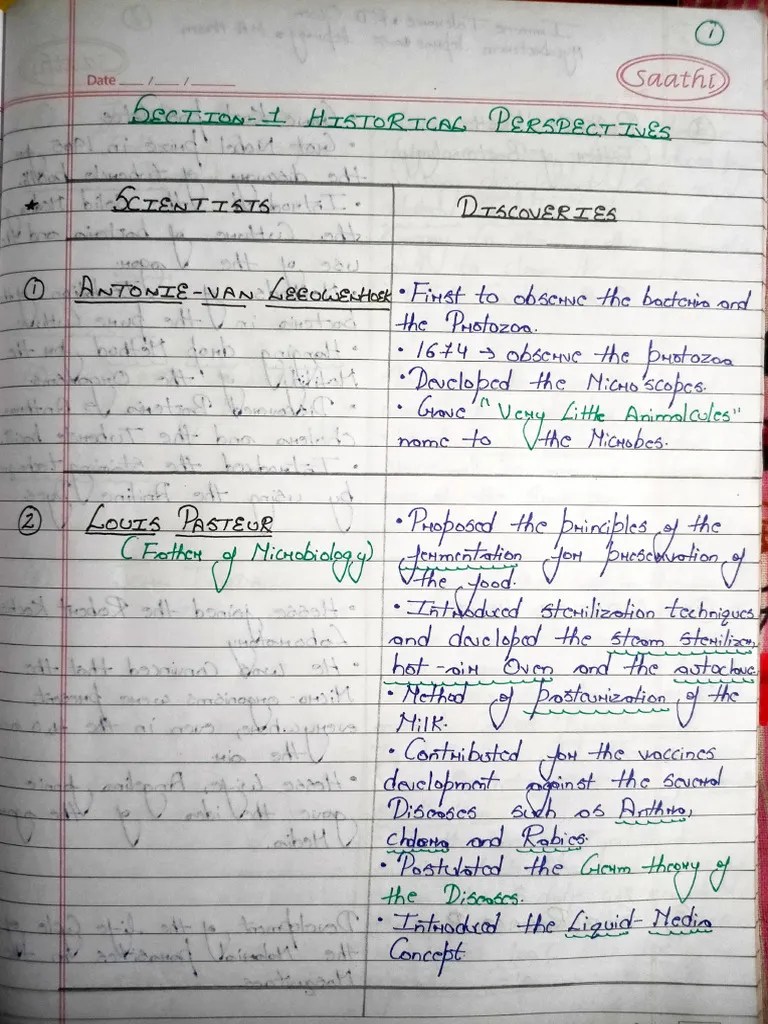 1
Date __/__/____
Saathi
SECTION-1 HISTORICAL PERSPECTIVES
* SCIENTISTS
DISCOVERIES
① ANTONIE-VAN LEEOWENHOEK
• First to observe the bacteria and
the Protozoa.
• 1674 → observe the protozoa
• Developed the Microscopes.
• Gave "Very Little Animalcules"
name to the Microbes.
② LOUIS PASTEUR
(Father of Microbiology)
• Proposed the principles of the
fermentation for preservation of
the food.
• Introduced sterilization techniques
and developed the steam sterilizer,
hot-air Oven and the autoclave
• Method of pasteurization of the
Milk.
• Contributed for the vaccines
development against the several
Diseases such as Anthrax,
cholera and Rabies.
• Postulated the Germ theory of
the Diseases.
• Introduced the Liquid-Media
Concept